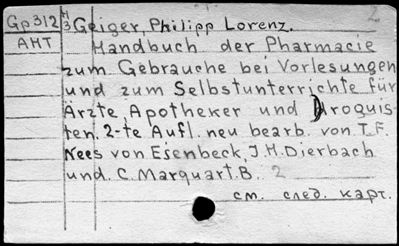 2
Gp312 H3 Geiger, Philipp Lorenz.
AHT Handbuch der Pharmacie
zum Gebrauche bei Vorlesungen
und zum Selbstunterrichte für
Ärzte, Apotheker und Droguis-
ten. 2-te Aufl. neu bearb. von T.F.
Nees von Esenbeck, J.H. Dierbach
und C. Marquart. B. 2
см. след. карт.